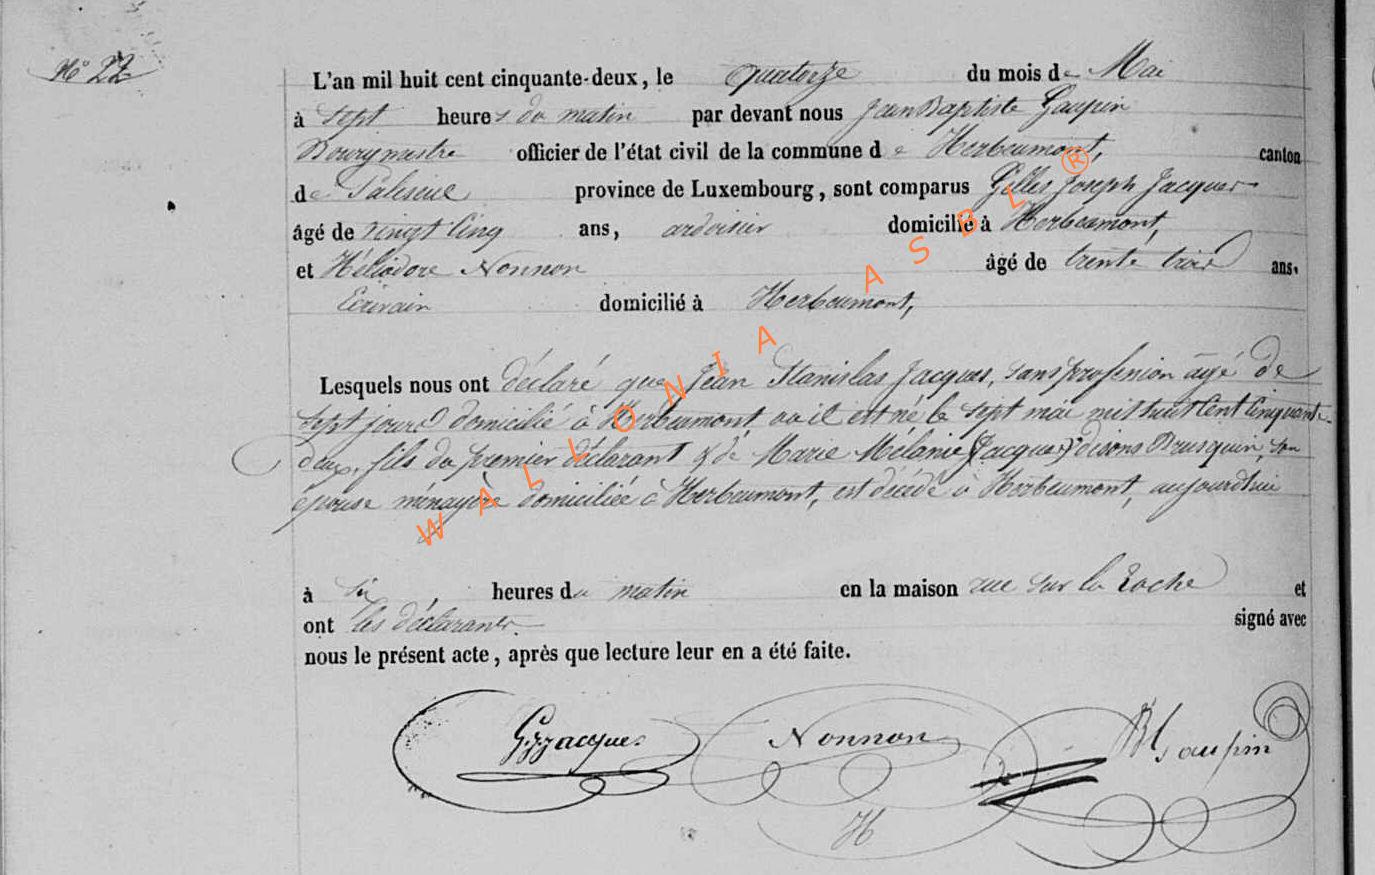 N° 22
L'an mil huit cent cinquante-deux, le quatorze du mois de Mai
à sept heures du matin par devant nous Jean Baptiste Gaupin
Bourgmestre officier de l'état civil de la commune de Herbeumont, canton
de Paliseul province de Luxembourg, sont comparus Gilles Joseph Jacques
âgé de vingt cinq ans, ardoisier domicilié à Herbeumont,
et Héliodore Nonnon âgé de trente trois ans.
Ecrivain domicilié à Herbeumont,
Lesquels nous ont déclaré que Jean Stanislas Jacques, sans profession âgé de
sept jours domicilié à Herbeumont où il est né le sept mai mil huit cent cinquante
deux, fils du premier déclarant & de Marie Mélanie (Jacques) disons Brusquin son
épouse ménagère domiciliée à Herbeumont, est décédé à Herbeumont, aujourdhui
à six heures du matin en la maison rue sur la Roche et
ont les déclarants signé avec
nous le présent acte, après que lecture leur en a été faite.
GJJacques Nonnon JBGaupin
H
WALLONIA ASBL ®